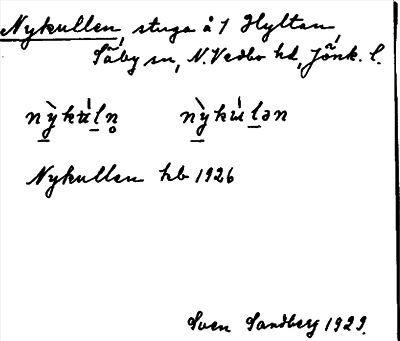 Nykullen, stuga å 1 Hyltan,
Säby sn, N. Vedbo hd, Jönk. l.
nỳkúln̥ nỳkúlən
Nykullen hb 1926
Sven Sandberg 1929.